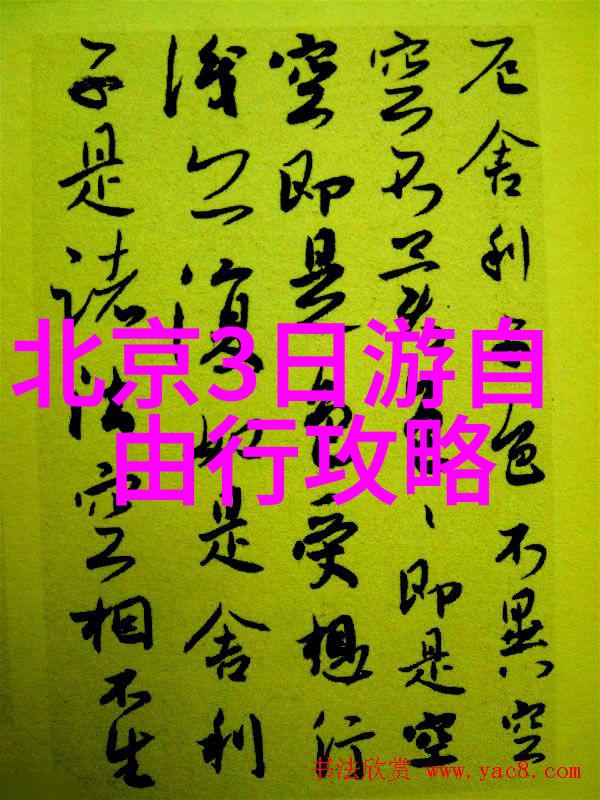 厄舍利子色不異空
空不異色色即是空
空即是色受想行
識亦復如是舍利
子是諸法空相不生
北京3日游自
由行攻略
书法欣赏 www.yac8.com